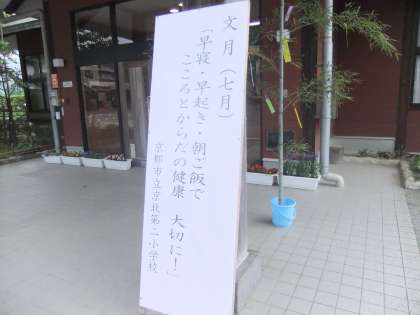 文月(七月)
「早寝・早起き・朝ご飯で
こころとからだの健康 大切に!」
京都市立京北第二小学校